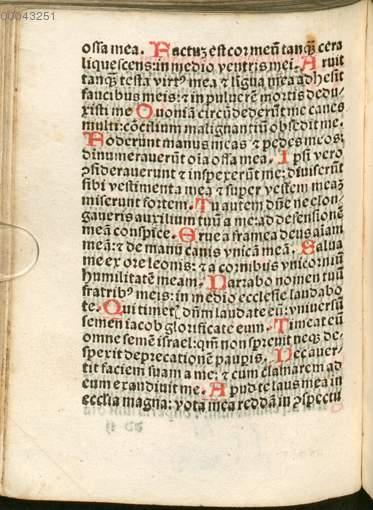 00043251
ossa mea. Factuȝ est cor meū tanq̄ȝ cera
liquescens: in medio ventris mei. Aruit
tanq̄ȝ testa virtꝰ mea ⁊ līgua mea adhesit
faucibus meis: ⁊ in puluerē mortis dedu-
xisti me Quoniā circūdederūt me canes
multi: cōcilium malignantiū obsedit me.
Foderunt manus meas ⁊ pedes meos:
dinumerauerūt oīa ossa mea. Ipsi vero
ꝯsiderauerunt ⁊ inspexerūt me: diuiserūt
sibi vestimenta mea ⁊ super vestem meaȝ
miserunt sortem. Tu autem dn̄e ne elon-
gaueris auxilium tuū a me: ad defensionē
meā conspice. Erue a framea deus aīam
meā: ⁊ de manu canis vnicā meā. Salua
me ex ore leonis: ⁊ a cornibus vnicorniū
humilitatē meam. Narrabo nomen tuū
fratribꝰ meis: in medio ecclesie laudabo
te. Qui timet dn̄m laudate eū: vniuersū
semen iacob glorificate eum. Timeat eū
omne semē israel: qm̄ non spreuit neqȝ de-
spexit deprecationē pauꝑis. Nec auer-
tit faciem suam a me: ⁊ cum clamarem ad
eum exaudiuit me. Apud te laus mea in
ecclīa magna: vota mea reddā in ꝯspectu